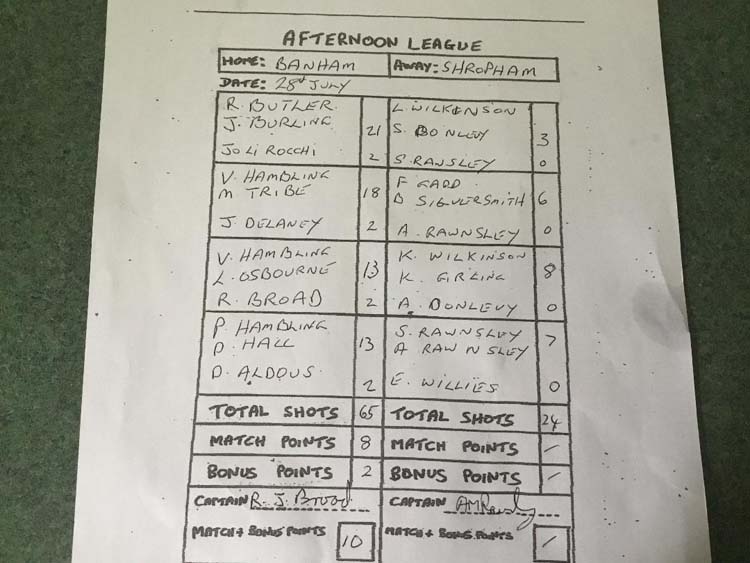 AFTERNOON LEAGUE
HOME: BANHAM AWAY: SHROPHAM
DATE: 28th JULY
R. BUTLER L. WILKENSON
J. BURLING 21 S. DONLEVY 3
JOLI ROCCHI 2 S. RAWSLEY 0
V. HAMBLING F GADD
M TRIBE 18 D SIGVERSMITH 6
J. DELANEY 2 A. RAWNSLEY 0
V. HAMBLING K. WILKINSON
L. OSBOURNE 13 K. GIRLING 8
R. BROAD 2 A. DONLEVY 0
P. HAMBLING S. RAWNSLEY
D. HALL 13 A RAWNSLEY 7
D. ALDOUS 2 E. WILLIES 0
TOTAL SHOTS 65 TOTAL SHOTS 24
MATCH POINTS 8 MATCH POINTS /
BONUS POINTS 2 BONUS POINTS /
CAPTAIN R. J. Broad. CAPTAIN
MATCH + BONUS POINTS 10 MATCH + BONUS POINTS /